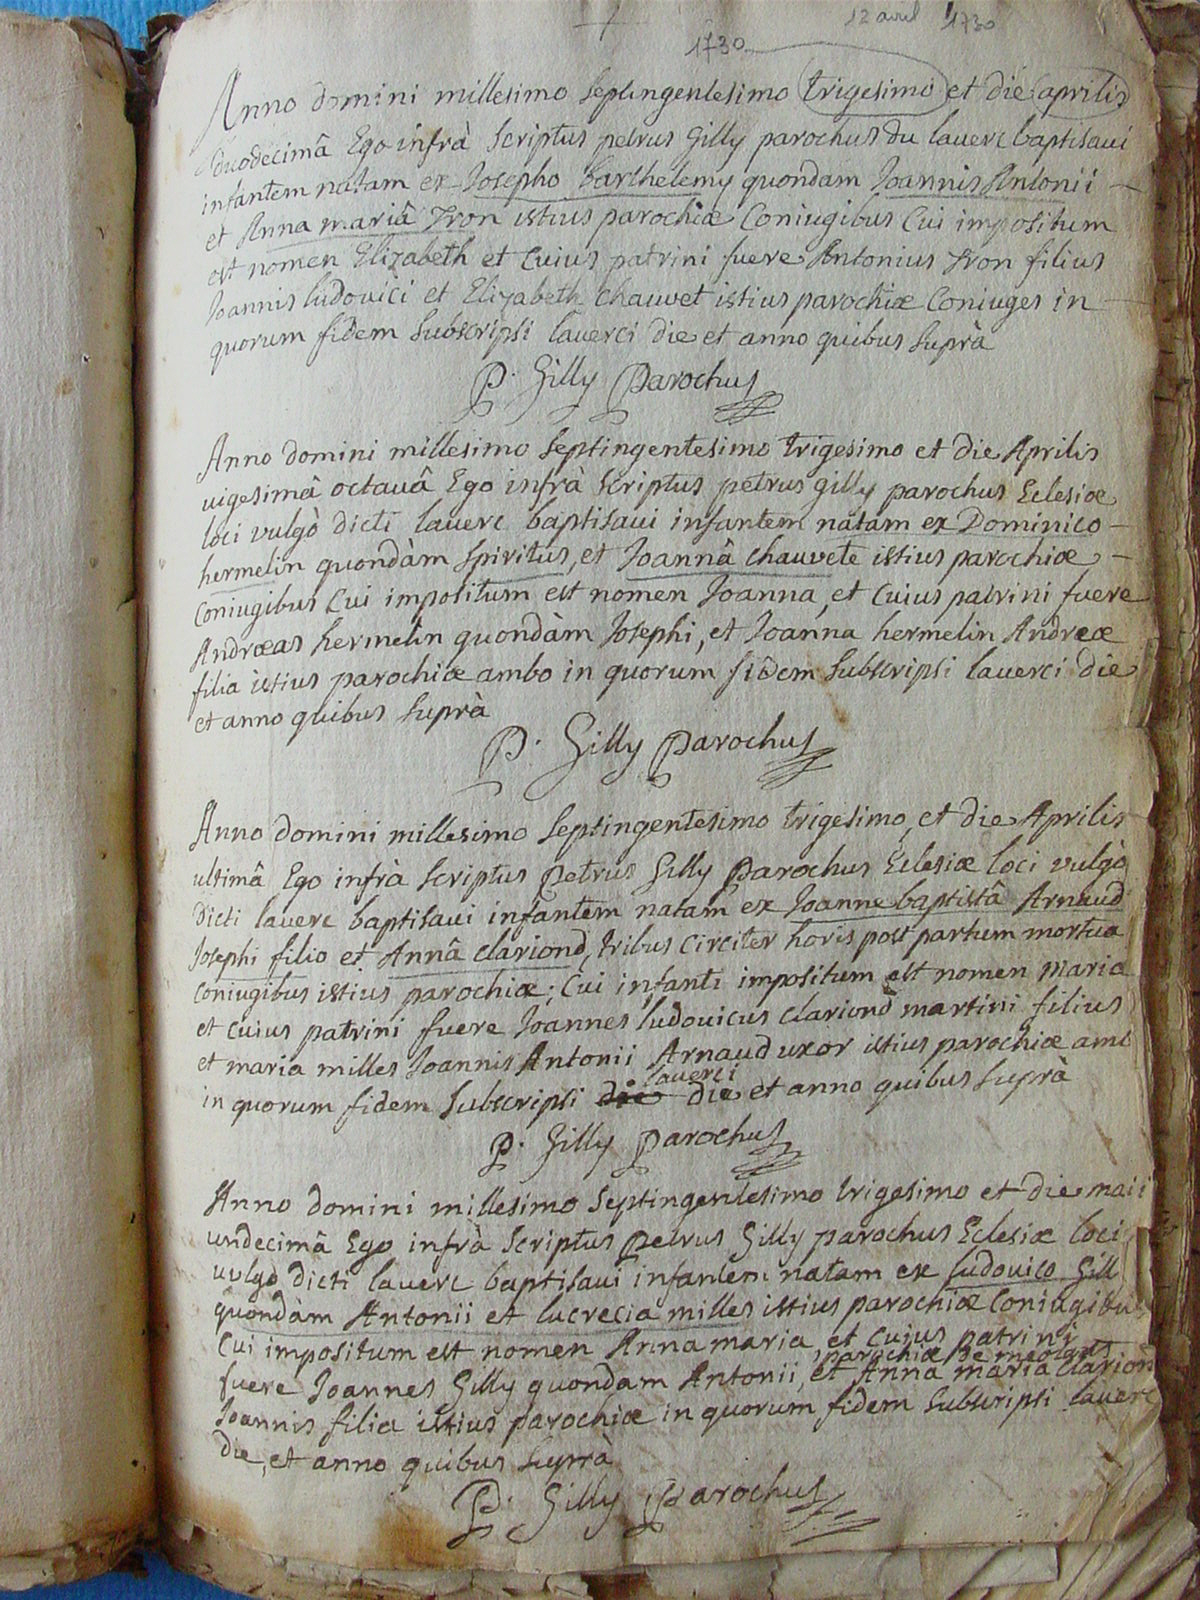 12 avril 1730
1730
Anno domini millesimo septingentesimo trigesimo et die aprilis
duodecimâ Ego infrà scriptus petrus Gilly parochus du laverc baptisaui
infantem natam ex Josepho barthelemy quondam Joannis Antonii
et Anna mariâ Tron istius parochiæ Coniugibus Cui impositum
est nomen Elizabeth et Cuius patrini fuere Antonius Tron filius
Joannis ludouici et Elizabeth chauvet istius parochiæ Coniuges in
quorum fidem subscripsi laverci die et anno quibus suprà
P. Gilly Parochus
Anno domini millesimo septingentesimo trigesimo et die Aprilis
uigesimâ octauâ Ego infrà scriptus petrus gilly parochus Eclesiæ
loci vulgò dicti laverc baptisaui infantem natam ex Dominico
hermelin quondàm spiritus, et Joannâ chauvete istius parochiæ
Coniugibus Cui impositum est nomen Joanna, et Cuius patrini fuere
Andræas hermelin quondàm Josephi, et Joanna hermelin Andreæ
filia istius parochiæ ambo in quorum fidem subscripsi laverci die
et anno quibus suprà
P. Gilly Parochus
Anno domini millesimo septingentesimo trigesimo, et die Aprilis
ultimâ Ego infrà scriptus Petrus Gilly Parochus Eclesiæ loci vulgò
Dicti laverc baptisaui infantem natam ex Joanne baptistâ Arnaud
Josephi filio et Annâ clariond, tribus circiter horis post partum mortua
coniugibus istius parochiæ; Cui infanti impositum est nomen Maria
et cuius patrini fuere Joannes ludouicus clariond martini filius
et maria milles Joannis Antonii Arnaud uxor istius parochiæ amb
laverci
in quorum fidem subscripsi die die et anno quibus suprà
P. Gilly Parochus
Anno domini millesimo septingentesimo trigesimo et die maii
undecimâ Ego infrà scriptus Petrus Gilly parochus Eclesiæ loci
uulgò dicti laverc baptisaui infantem natam ex ludouico Gill
quondàm Antonii et lucrecia milles istius parochiæ Coniugibu
Cui impositum est nomen Anna maria et cuius patrini
parochiæ de meolans
fuere Joannes Gilly quondam Antonii, et Anna maria clarion
Joannis filia istius parochiæ in quorum fidem subscripsi laverc
die, et anno quibus suprà
P. Gilly Parochus